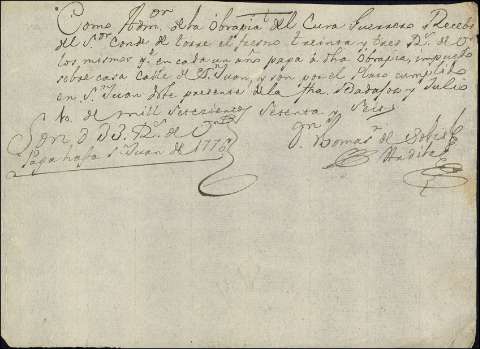 Como Adm.or de la obrapia q.e del Cura Guerrero Recebi
del S.or Conde de torre el fresno treinta y tres R.s de V.n
los mismos q. en cada un año paga á dha obrapia, impuesto
sobre casa Calle de S.n Juan, y son por el cumplido
en S.n Juan de este presente de la fha. Badajoz y Julio
de mill Setecientos Setenta y Seis
Son 33 R.s de V.n
Paga hasta S.n Juan de 1776
Thomas de